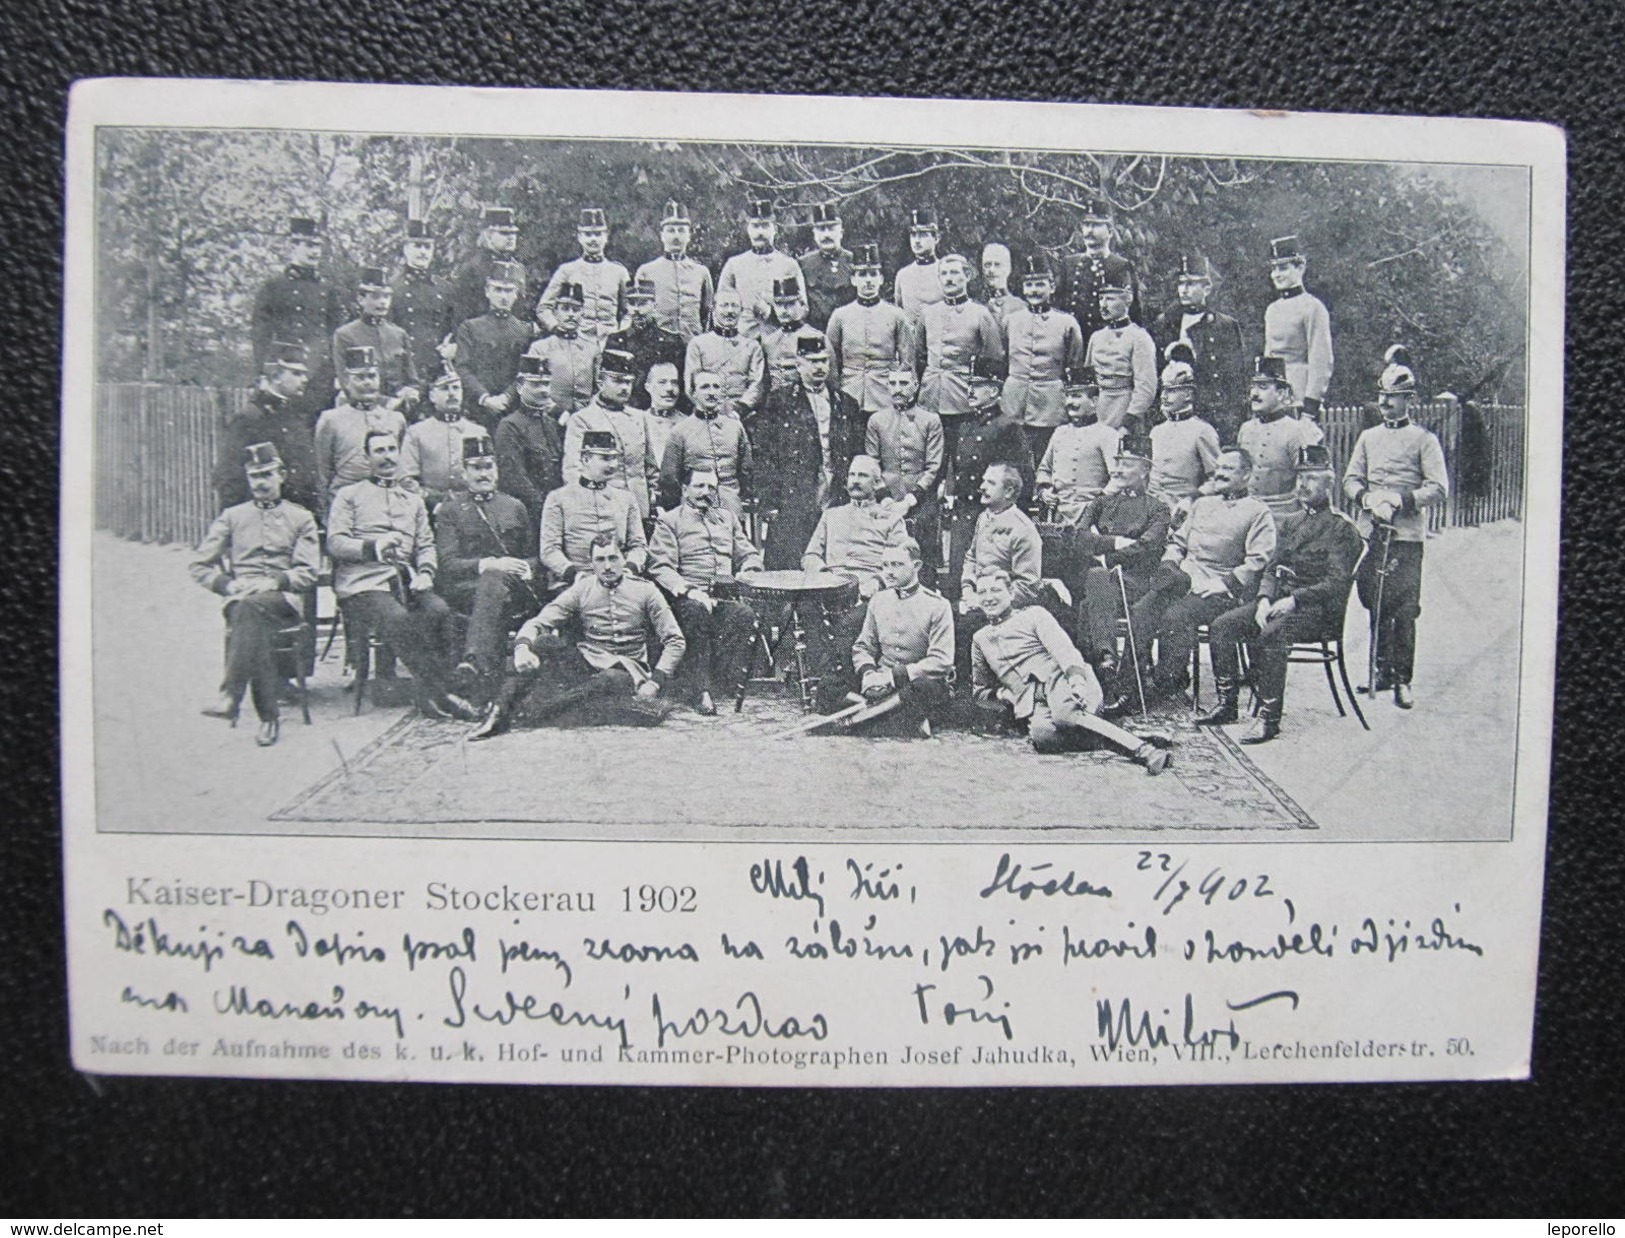 Kaiser-Dragoner Stockerau 1902
Milý Jiří, 22/7 902,
Děkuji za dopis psal jsem zrovna na záložnu, jak jsi pravil v pondělí odjíždím
na Manevry. Srdečný pozdrav Tvůj Miloš
Nach der Aufnahme des k. u. k. Hof- und Kammer-Photographen Josef Jahudka, Wien, VIII., Lerchenfelderstr. 50.
www.delcampe.net
leporello